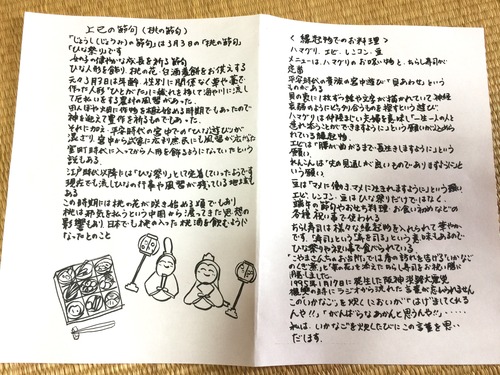 上巳の節句(桃の節句)
「じょうし(じょうみ)の節句」は3月3日の「桃の節句」
「ひな祭り」です
女の子の健やかな成長を祈る節句
ひな人形を飾り、桃の花・白酒・菱餅をお供えする
元々3月3日は年齢、性別に関係なく草や藁で
作った人形「ひとがた」に穢れを移して海や川に流し
て厄払いをする農村の風習があった。
田んぼや大畑に作物を植え始める時期でもあったので
神を迎えて豊作を祈るものであった。
それに加え、平安時代の宮中での「ひな遊び」が
混ざり、宮中から武家にお利庶民にも風習が広がった
室町時代に入ってから人形を飾るようになっていたという
説もある
江戸時代以降には「ひな祭り」として定着していったようです
現在でも流しひなの行事や風習が残っている地域も
ある
この時期には桃の花が咲き始める頃でもあり
桃は邪気を払うという中国から渡ってきた思想の
影響もあり、日本でも桃の入った桃酒を飲むように
なったとのこと
<縁起物でのお料理>
ハマグリ、エビ、レンコン、豆
メニューは、ハマグリのお吸い物と、ちらし寿司が
定番
平安時代の貴族の宮中遊び「貝あわせ」という
ものがある
貝の裏に1枚ずつ絵や文字が描かれていて神経
衰弱のようにピッタリ合うものを探すという遊び
ハマグリは仲睦まじい夫婦を意味し「一生一人の人と
連れ添うことができますように」という願いがこめら
れている縁起物
エビは「腰が曲がるまで長生きしますように」という
願い
れんこんは「先の見通しが良いものでありますように」と
いう願い
豆は「マメに働き、マメに生きれますように」という願い
エビ、レンコン、豆はひな祭りだけではなく、
端午の節句やおせち料理、お食い初めなどの
各種祝い事で使われる
ちらし寿司は様々な縁起物を入れられて華やか
です。「寿司」という「寿を司る」という意味もあるので
ひな祭りや祝い事で食べられている
「こやまさんちのお台所」では春の訪れを告げる「いかなご
のくぎ煮」と「菜の花」を添えてのちらし寿司をお祝い膳に
用意しました。
1995年1月17日に発生した阪神淡路大震災
復興の時にラジオから流れた言葉が忘れられません
このいかなごを炊くにおいが「はげましてくれる
んや!!」「がんばらなあかんと思うんや!!」‥‥‥
私は、いかなごを炊くたびにこの言葉を思い
だします。